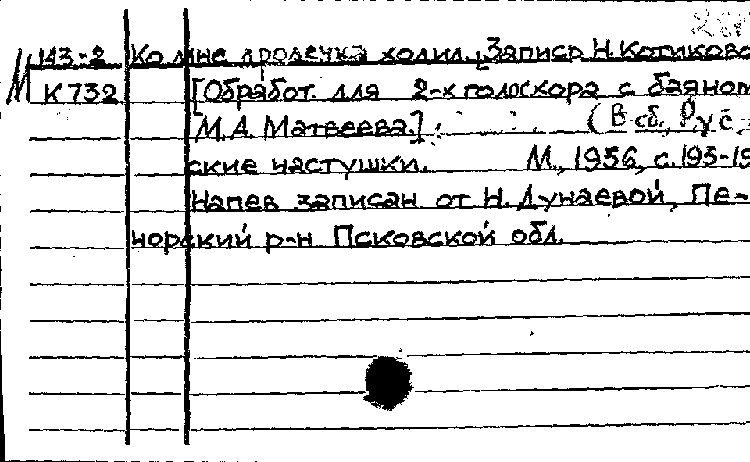 М 143-2 Ко мне дролечка ходил. [Запись Н. Котиково
К 732 [Обработ. для 2-х голос. хора с баяном
М.А. Матвеева.] (В сб., Рус-
ские частушки. М., 1956, с. 195-19
Напев записан от Н. Дунаевой, Пе-
чорский р-н Псковской обл.